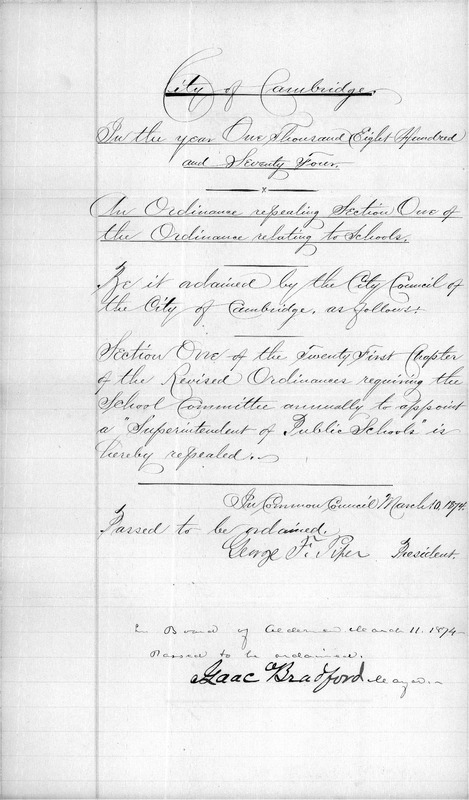 City of Cambridge.
In the year One Thousand Eight Hundred
and Seventy Four.
An Ordinance repealing Section One of
the Ordinance relating to Schools.
Be it ordained by the City Council of
the City of Cambridge, as follows:
Section One of the Twenty First Chapter
of the Revised Ordinances requiring the
School Committee annually to appoint
a "Superintendent of Public Schools" is
hereby repealed.
In Common Council March 10, 1874.
Passed to be ordained.
George F. Piper President.
In Board of Aldermen March 11. 1874
Passed to be ordained.
Isaac Bradford Mayor.